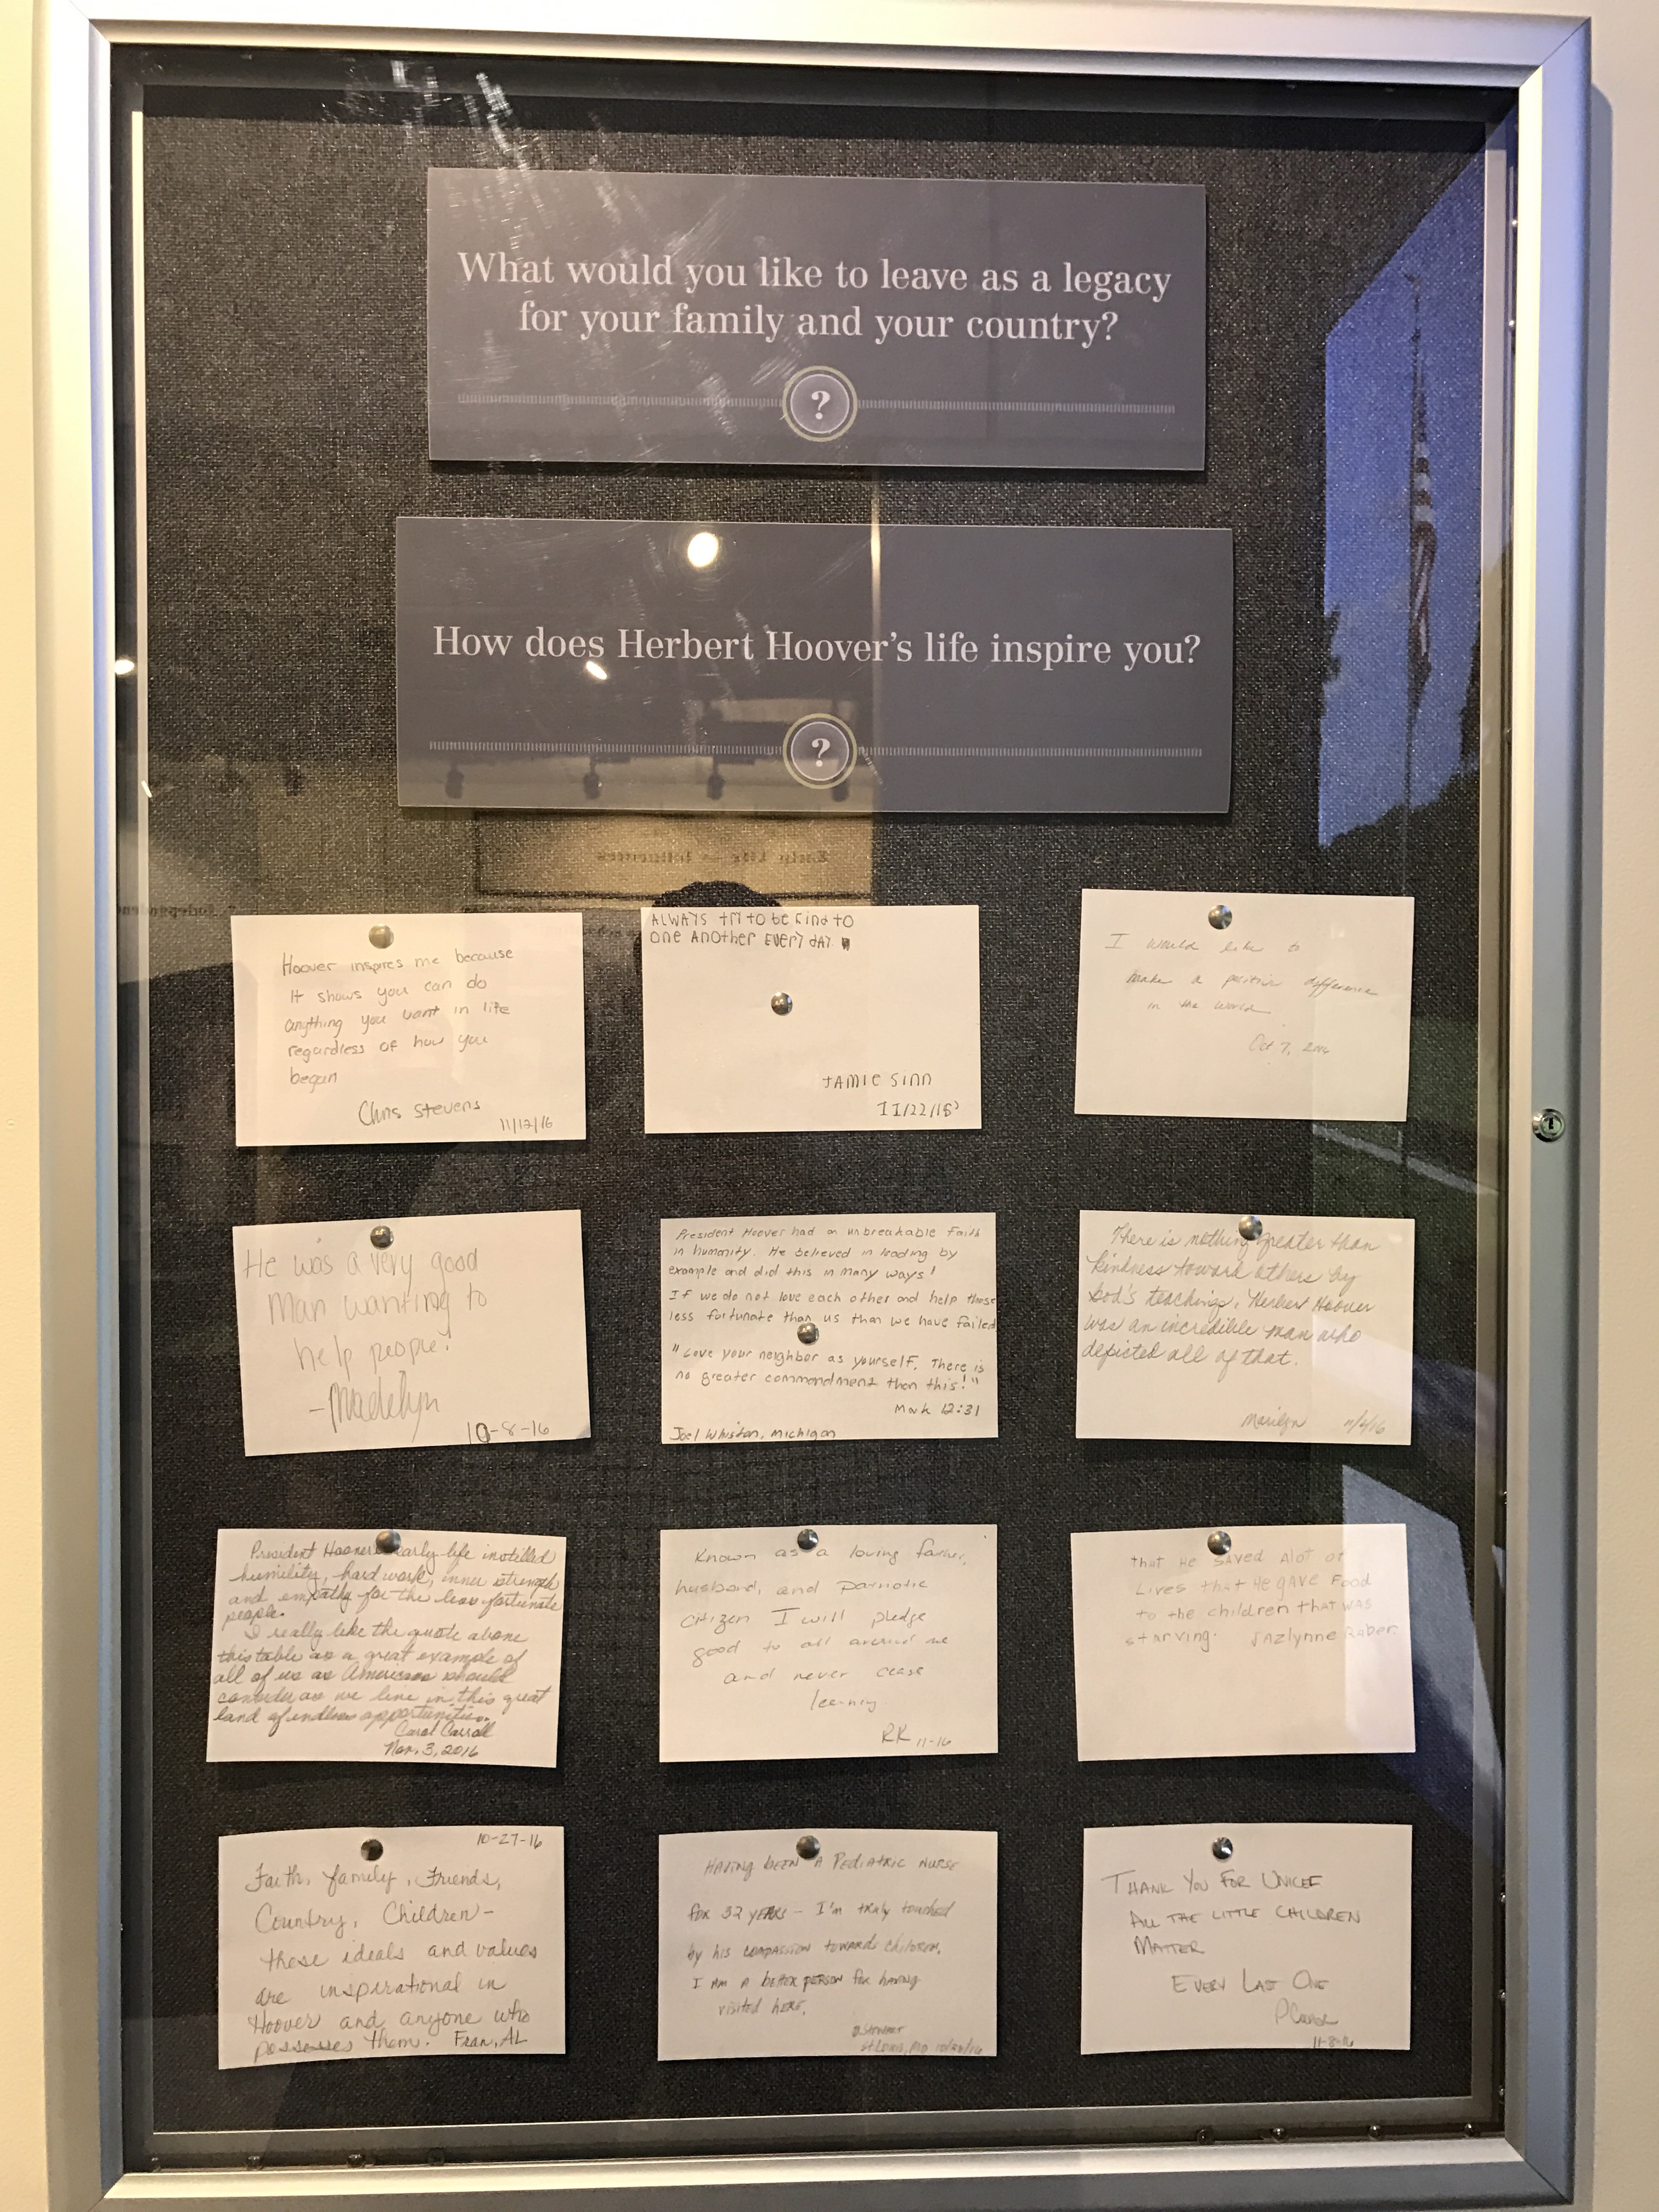 What would you like to leave as a legacy
for your family and your country?
?
How does Herbert Hoover's life inspire you?
?
Hoover inspires me because
it shows you can do
anything you want in life
regardless of how you
began
Chris Stevens
11/12/16
ALWAYS trY to be kind to
one ANother EVERY dAY
JAMIE Sinn
11/22/16
I would like to
make a positive difference
in the world
Oct 7, 2016
He was a very good
man wanting to
help people!
-Madelyn
10-8-16
President Hoover had an unbreakable faith
in humanity. He believed in leading by
example and did this in many ways!
If we do not love each other and help those
less fortunate than us than we have failed
"Love your neighbor as yourself. There is
no greater commandment than this!"
Mark 12:31
Joel Whiston, Michigan
There is nothing greater than
kindness toward others by
God's teachings. Herbert Hoover
was an incredible man who
depicted all of that.
Marilyn 11/4/16
President Hoover's early life instilled
humility, hard work, inner strength
and empathy for the less fortunate
people.
I really like the quote above
this table as a great example of
all of us as Americans should
consider as we live in this great
land of endless opportunities.
Carol Carroll
Nov. 3, 2016
Known as a loving father,
husband, and patriotic
citizen I will pledge
good to all around me
and never cease
learning
RK 11-16
that He SAved Alot of
Lives that He gAve Food
to the children thAt WAS
stArving. JAzlynne RAber
10-27-16
Faith, family, Friends,
Country, Children-
these ideals and values
are inspirational in
Hoover and anyone who
possesses them. Fran, AL
HAVING bEEN A PEdiAtRic NURSE
for 32 yEARS - I'm truly touched
by his compassion towards children.
I AM A bettER pERSON for having
visited here.
Stewart
St Louis, MO
THANK YOU FOR UNICEF
ALL THE LITTLE CHILDREN
MATTER
EVERY LAST ONE
11-8-16